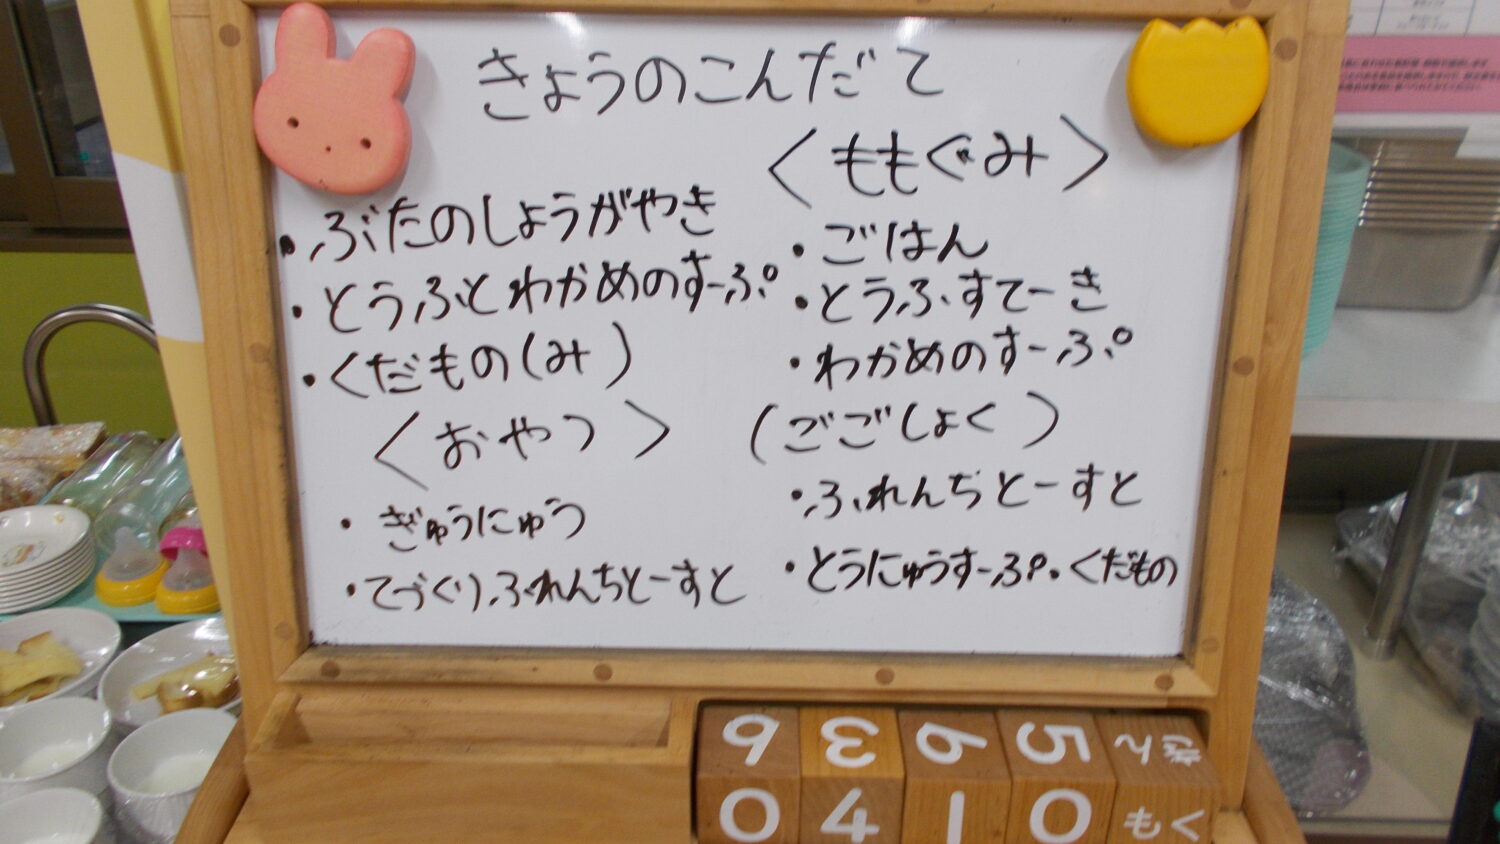 きょうのこんだて
・ぶたのしょうがやき
・とうふとわかめのすーぷ
・くだもの(みｷ)
〈おやつ〉
・ぎゅうにゅう
・てづくりふれんちとーすと
〈ももぐみ〉
・ごはん
・とうふすてーき
・わかめのすーぷ
(ごごしょく)
・ふれんぢとーすと
・とうにゅうすーぷ・くだもの
9 3 6 5
0 4 1 0 もく